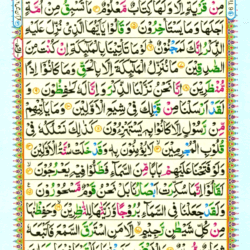 مِنْ قَرْيَةٍ اِلَّا وَلَهَا كِتَابٌ مَّعْلُوْمٌ ۝ مَا تَسْبِقُ مِنْ اُمَّةٍ
اَجَلَهَا وَمَا يَسْتَاْخِرُوْنَ ۝ وَقَالُوْا يٰٓاَيُّهَا الَّذِيْ نُزِّلَ عَلَيْهِ
الذِّكْرُ اِنَّكَ لَمَجْنُوْنٌ ۝ لَوْ مَا تَاْتِيْنَا بِالْمَلٰٓئِكَةِ اِنْ كُنْتَ مِنَ
الصّٰدِقِيْنَ ۝ مَا نُنَزِّلُ الْمَلٰٓئِكَةَ اِلَّا بِالْحَقِّ وَمَا كَانُوْٓا اِذًا
مُّنْظَرِيْنَ ۝ اِنَّا نَحْنُ نَزَّلْنَا الذِّكْرَ وَاِنَّا لَهٗ لَحٰفِظُوْنَ ۝ وَ
لَقَدْ اَرْسَلْنَا مِنْ قَبْلِكَ فِيْ شِيَعِ الْاَوَّلِيْنَ ۝ وَمَا يَاْتِيْهِمْ
مِّنْ رَّسُوْلٍ اِلَّا كَانُوْا بِهٖ يَسْتَهْزِءُوْنَ ۝ كَذٰلِكَ نَسْلُكُهٗ فِيْ
قُلُوْبِ الْمُجْرِمِيْنَ ۝ لَا يُؤْمِنُوْنَ بِهٖ وَقَدْ خَلَتْ سُنَّةُ الْاَوَّلِيْنَ ۝
وَلَوْ فَتَحْنَا عَلَيْهِمْ بَابًا مِّنَ السَّمَآءِ فَظَلُّوْا فِيْهِ يَعْرُجُوْنَ ۝
لَقَالُوْٓا اِنَّمَا سُكِّرَتْ اَبْصَارُنَا بَلْ نَحْنُ قَوْمٌ مَّسْحُوْرُوْنَ ۝
وَلَقَدْ جَعَلْنَا فِي السَّمَآءِ بُرُوْجًا وَّزَيَّنّٰهَا لِلنّٰظِرِيْنَ ۝ وَحَفِظْنٰهَا
مِنْ كُلِّ شَيْطٰنٍ رَّجِيْمٍ ۝ اِلَّا مَنِ اسْتَرَقَ السَّمْعَ فَاَتْبَعَهٗ